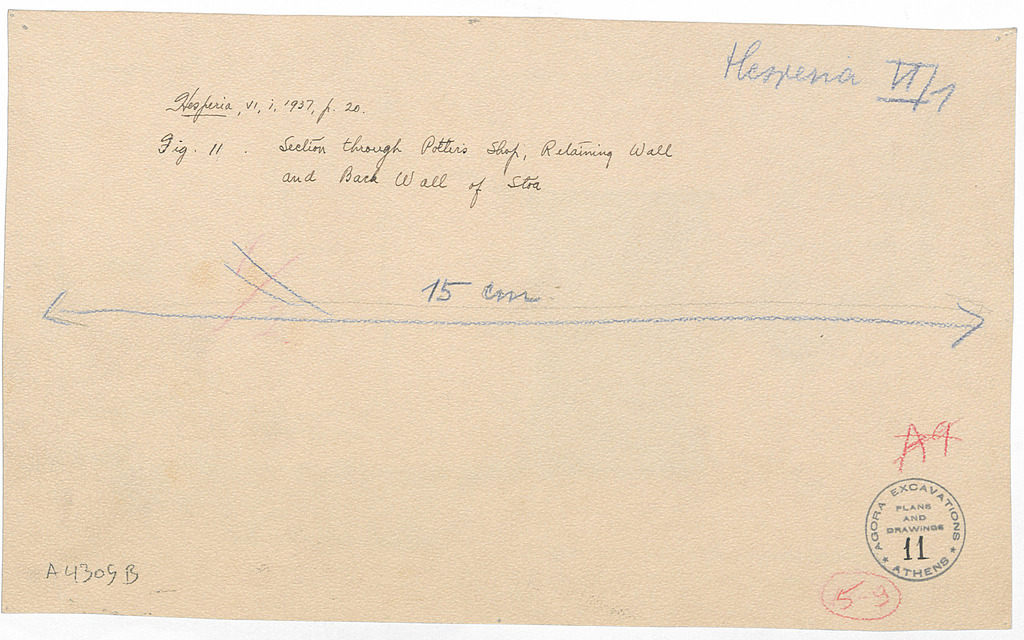 Hesperia VI/1
Hesperia, VI, i, 1937, p. 20.
Fig. 11. Section through Potter's Shop, Retaining Wall
and Back Wall of Stoa
15 cm
AGORA EXCAVATIONS
PLANS
AND
DRAWINGS
11
* ATHENS *
5-9
A4309B